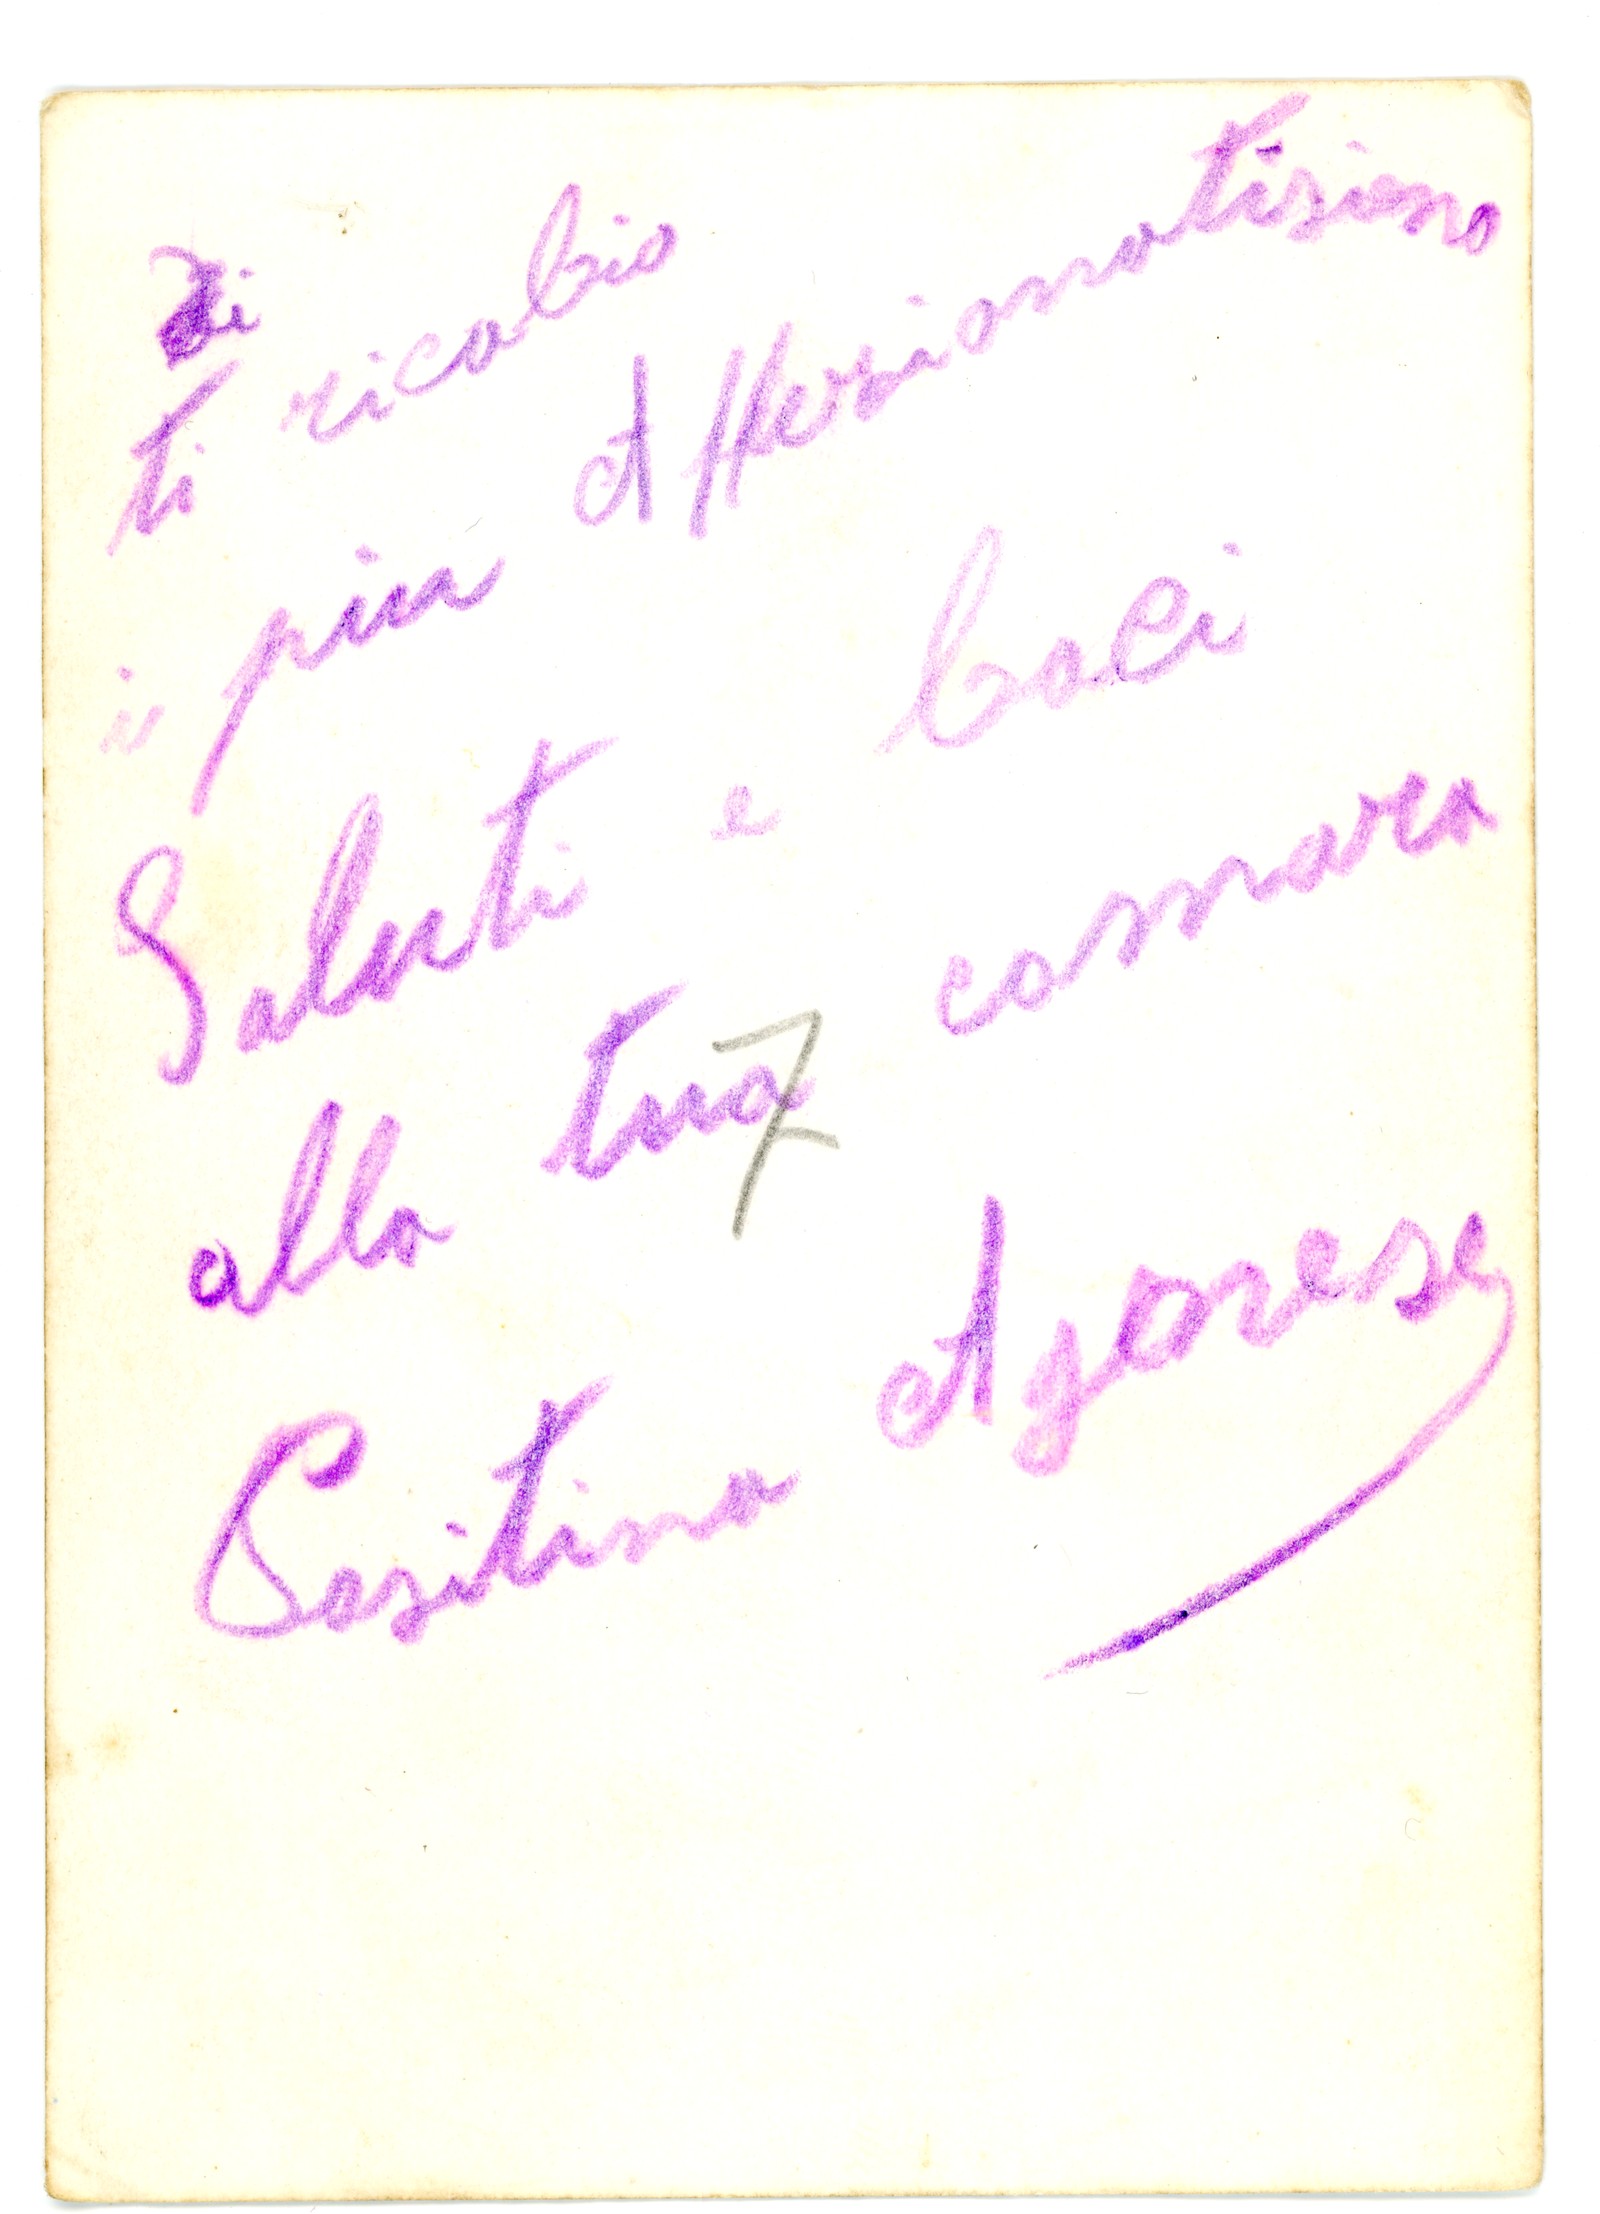 Di
ti ricabio
i piu Affersionatisimo
Saluti e baci
alla tua comara
7
Cositina Agorese